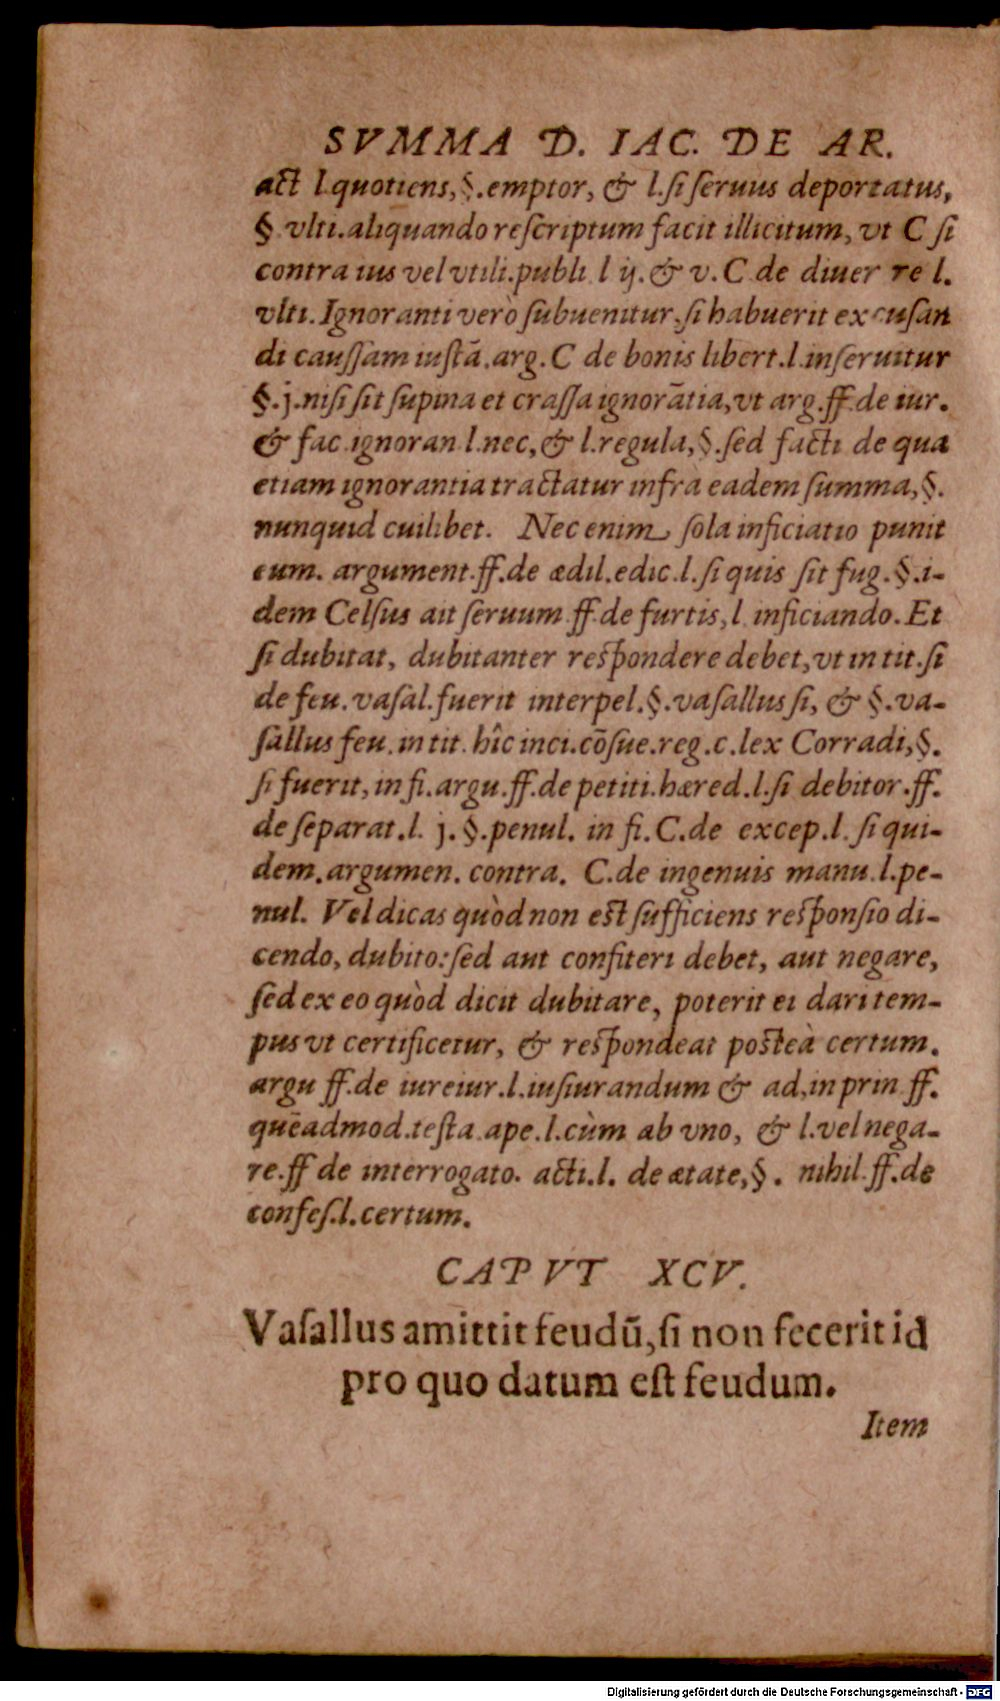 SVMMA D. IAC. DE AR.
act l.quotiens,§.emptor, & l.ſi ſeruus deportatus,
§ vlti.aliquando reſcriptum facit illicitum, vt C ſi
contra ius vel vtili.publi l ij. & v. C de diuer re l.
vlti. Ignoranti verò ſubuenitur, ſi habuerit excuſan
di cauſſam iuſtā.arg.C de bonis libert.l.in ſeruitur
§.j.niſi ſit ſupina et craſſa ignorātia,vt arg.ff.de iur.
& fac ignoran l.nec,& l.regula,§.ſed facti de qua
etiam ignorantia tractatur infrà eadem ſumma,§.
nunquid cuilibet. Nec enim ſola inficiatio punit
eum. argument.ff.de ædil.edic.l.ſi quis ſit fug.§.i-
dem Celſus ait ſeruum ff.de furtis,l inficiando. Et
ſi dubitat, dubitanter reſpondere debet,vt in tit.ſi
de feu.vaſal.fuerit interpel.§.vaſallus ſi, & §.va-
ſallus feu.in tit. hîc inci.cōſue.reg.c.lex Corradi,§.
ſi fuerit, in fi.argu.ff.de petiti.hæred.l.ſi debitor.ff.
de ſeparat.l. j.§.penul. in fi.C.de excep.l. ſi qui-
dem.argumen. contra. C.de ingenuis manu.l.pe-
nul. Vel dicas quòd non eſt ſufficiens reſponſio di-
cendo, dubito:ſed aut confiteri debet, aut negare,
ſed ex eo quòd dicit dubitare, poterit ei dari tem-
pus vt certificetur, & reſpondeat poſteà certum.
argu ff.de iureiur.l.iuſiurandum & ad,in prin ff.
quēadmod.teſta ape.l.cùm ab vno, & l.vel nega-
re.ff de interrogato. acti.l. de ætate,§. nihil ff.de
confeſ.l.certum.
CAPVT XCV.
Vaſallus amittit feudū,ſi non fecerit id
pro quo datum eſt feudum.
Item
Digitalisierung gefördert durch die Deutsche Forschungsgemeinschaft - DFG